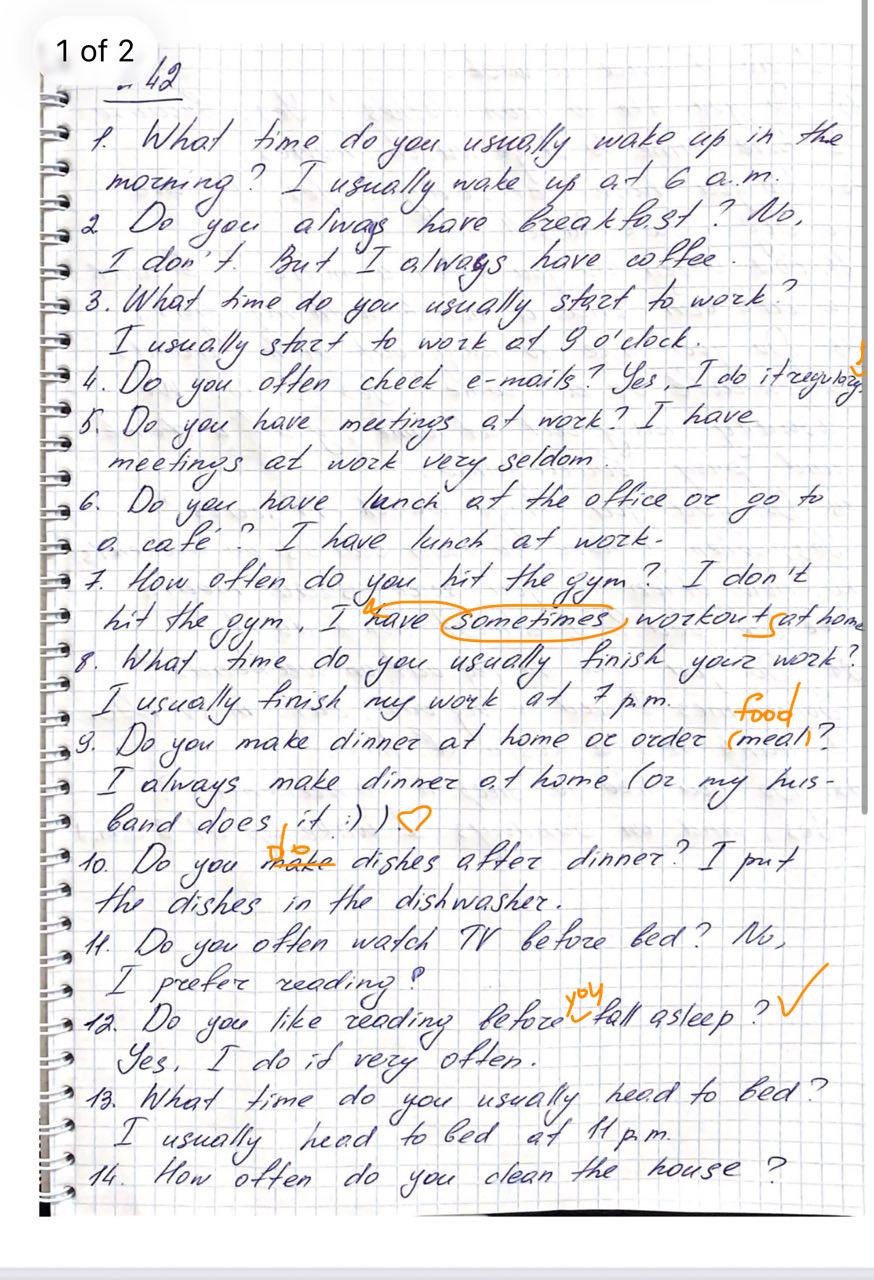 1 of 2
n 42
1. What time do you usually wake up in the
morning? I usually wake up at 6 a.m.
2. Do you always have breakfast? No,
I don't. But I always have coffee.
3. What time do you usually start to work?
I usually start to work at 9 o'clock.
4. Do you often check e-mails? Yes, I do it regulary
5. Do you have meetings at work? I have
meetings at work very seldom.
6. Do you have lunch at the office or go to
a café? I have lunch at work.
7. How often do you hit the gym? I don't
hit the gym, I have sometimes workout s at home
8. What time do you usually finish your work?
I usually finish my work at 7 p.m.
food
9. Do you make dinner at home or order (meal)?
I always make dinner at home (or my hus-
band does it :) )
do
10. Do you make dishes after dinner? I put
the dishes in the dishwasher.
11. Do you often watch TV before bed? No,
I prefer reading?
you
12. Do you like reading before fall asleep?
Yes, I do it very often.
13. What time do you usually head to bed?
I usually head to bed at 11 p.m.
14. How often do you clean the house?